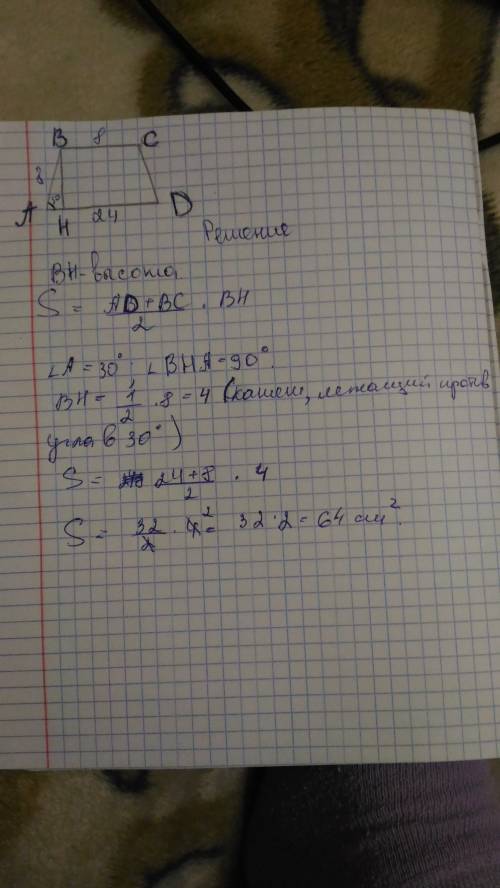 B 8 C
8
A H 24 D
Решение
BH-высота.
S = AD + BC / 2 · BH
∠A = 30°; ∠BHA = 90°.
BH = 1/2 · 8 = 4 (катет, лежащий против
угла в 30°)
S = 24+8 / 2 · 4
S = 32/2 · 4² = 32 · 2 = 64 см².